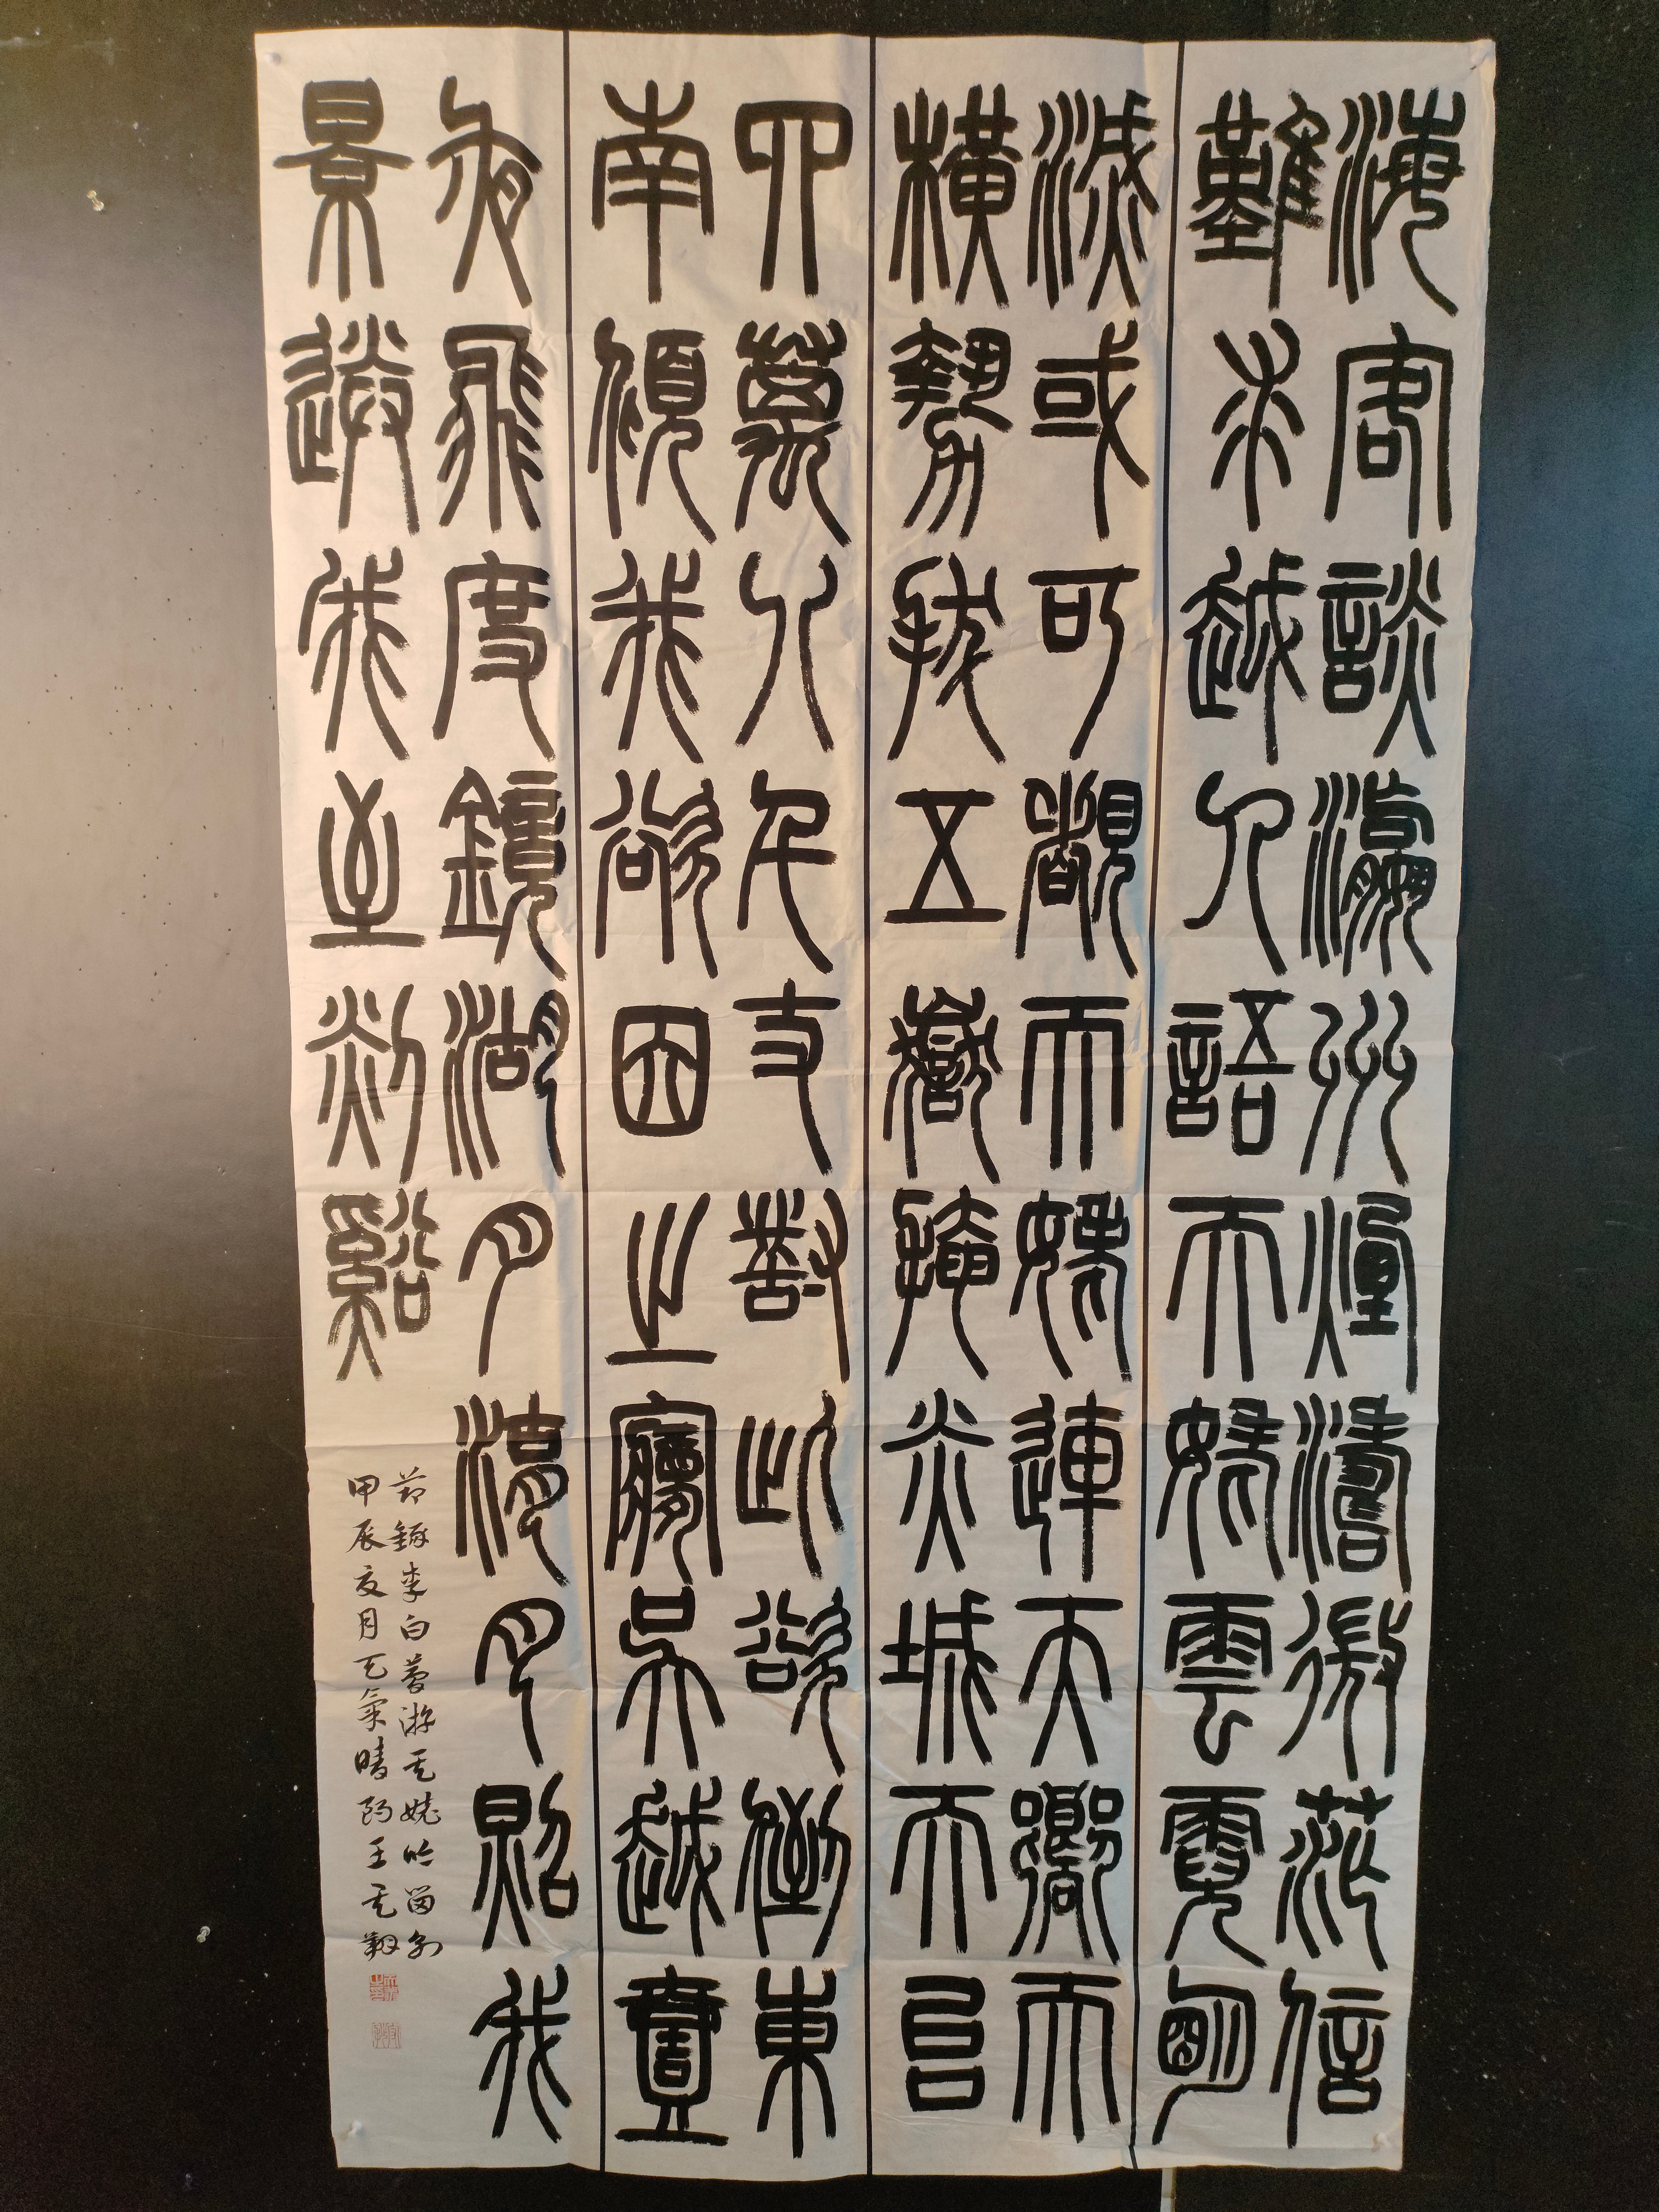 海客談瀛州煙濤微茫信
難求越人語天姥雲霓朙
滅或可覩天姥連天嚮天
橫勢拔五嶽掩赤城天台
四萬八千丈對此欲倒東
南傾我欲因之夢吳越壹
夜飛度鏡湖月湖月照我
景送我至剡谿
節錄李白夢游天姥吟留別
甲辰夏月天氣晴朗王天翔